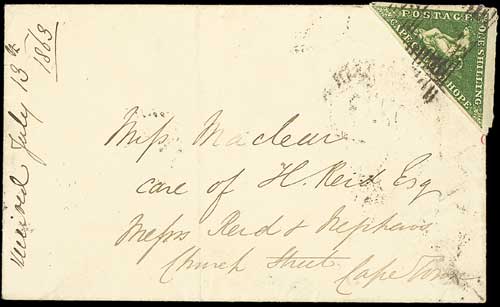 received July 13th
1863
POSTAGE
ONE SHILLING
CAPE OF GOOD HOPE
Miss Maclear
care of H. Reid Esq
Messrs Reid & Nephews
Church Street
Cape Town